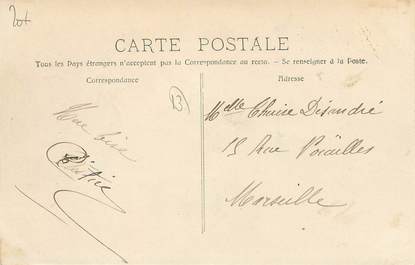 CARTE POSTALE
Tous les Pays étrangers n'acceptent pas la Correspondance au recto. - Se renseigner à la Poste.
Correspondance
Adresse
13
Une bise
Melle
15 Rue
Marseille